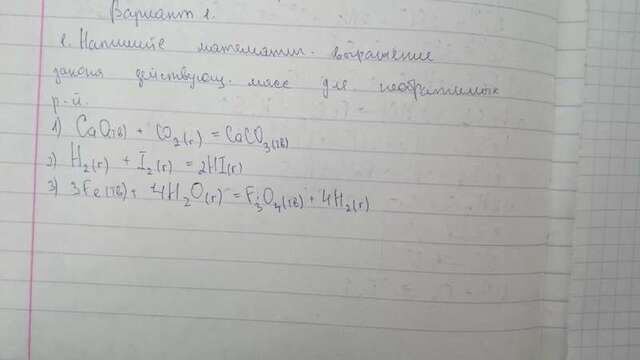 Вариант 1.
1. Напишите математич. выражение
закона действующ. масс для необратимых
р-й.
1) CaO(тв) + CO2(г) = CaCO3(тв)
2) H2(г) + I2(г) = 2HI(г)
3) 3Fe(тв) + 4H2O(г) = F3O4(тв) + 4H2(г)